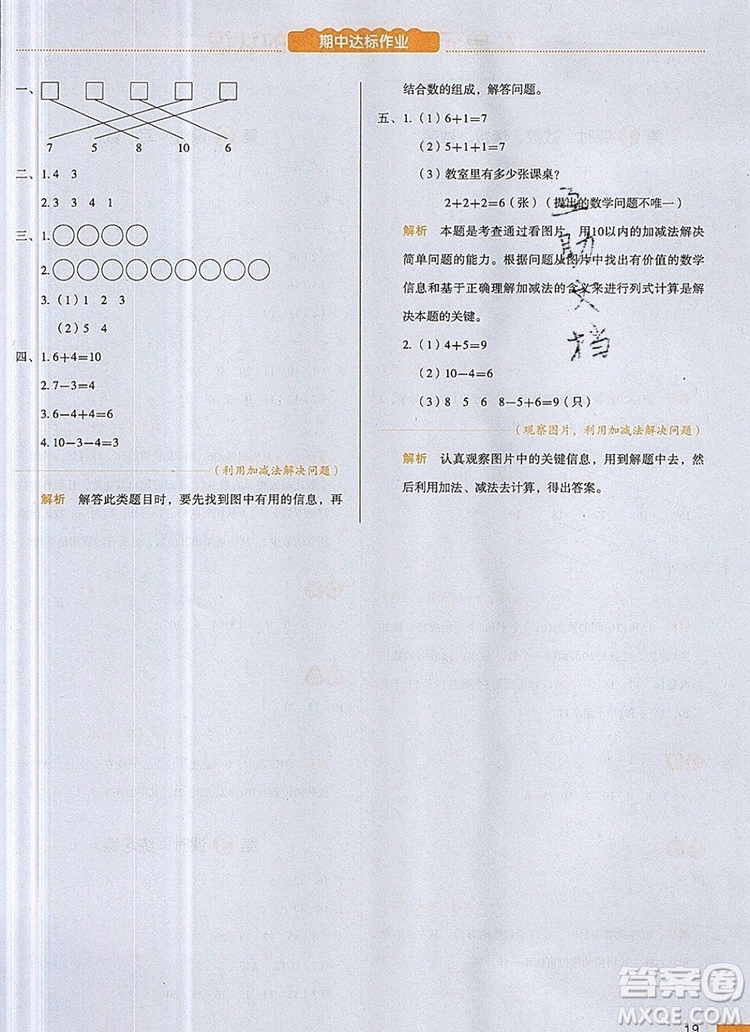 期中达标作业
一、□ □ □ □ □
7 5 8 10 6
二、1.4 3
2.3 3 4 1
三、1.○○○○
2.○○○○○○○○○
3.(1)1 2
(2)5 4
四、1.6+4=10
2.7-3=4
3.6-4+4=6
4.10-3-4=3
(利用加减法解决问题)
解析 解答此类题目时，要先找到图中有用的信息，再
结合数的组成，解答问题。
五、1.(1)6+1=7
(2)5+1+1=7
(3)教室里有多少张课桌?
2+2+2=6(张)(提出的数学问题不唯一)
解析 本题是考查通过看图片，用10以内的加减法解决
简单问题的能力。根据问题从图片中找出有价值的数学
信息和基于正确理解加减法的含义来进行列式计算是解
决本题的关键。
2.(1)4+5=9
(2)10-4=6
(3)8 5 6 8-5+6=9(只)
(观察图片，利用加减法解决问题)
解析 认真观察图片中的关键信息，用到解题中去，然
后利用加法、减法去计算，得出答案。
互助文档
答案圈
MXQE.COM
19